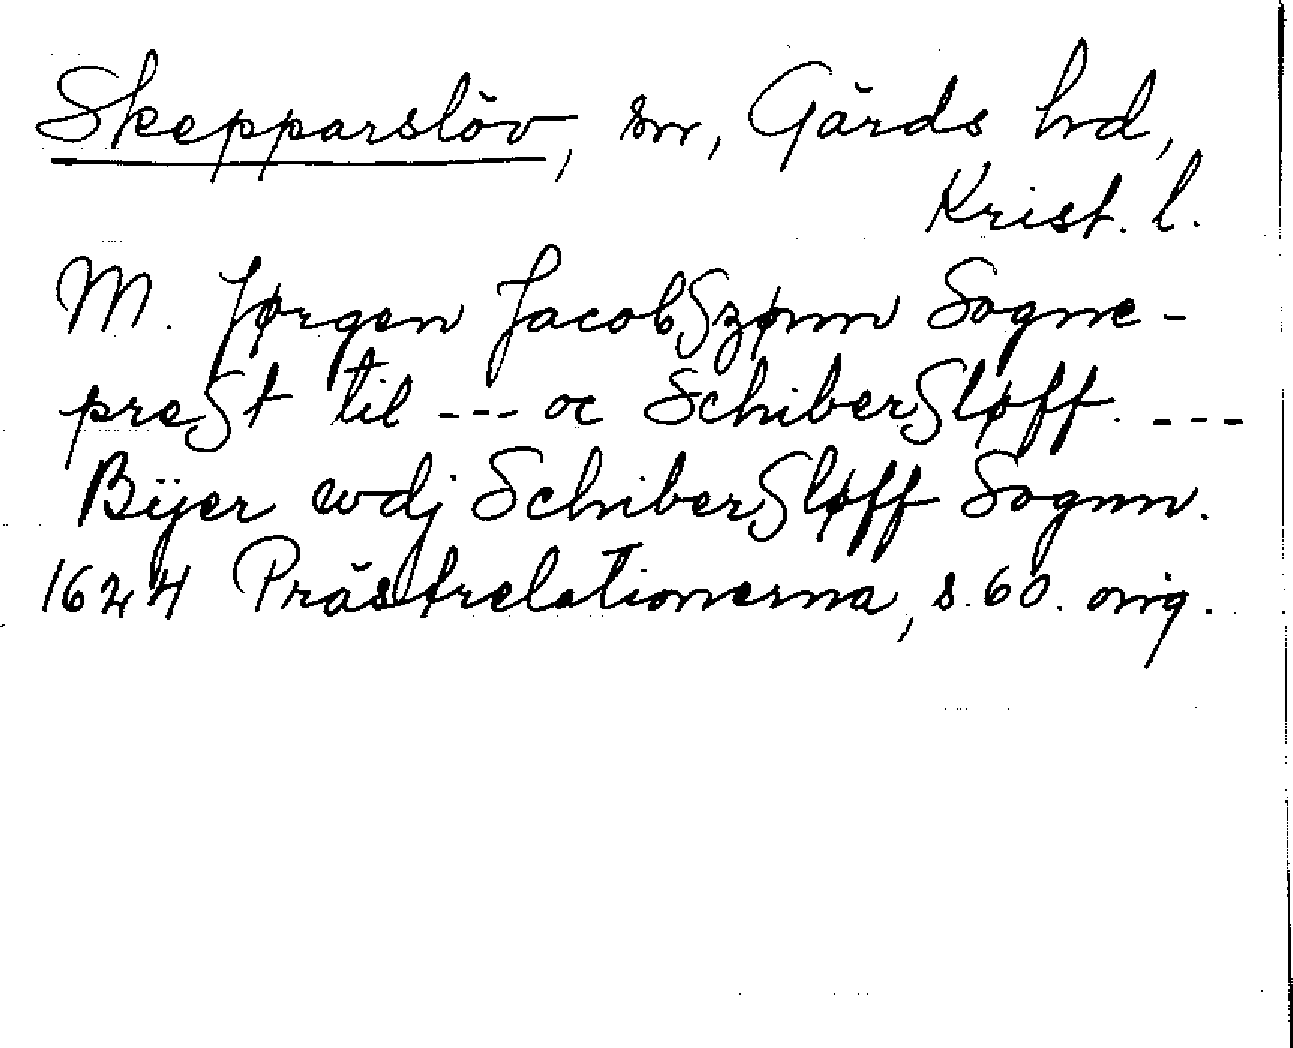 Skepparslöv, sn, Gärds hd,
Krist. l.
M. Jørgen Jacobſzønn Sogne-
preſt til --- oc Schiberſløff. ---
Bÿer wdj Schiberſløff Sognn.
1624 Prästrelationerna, s. 60. orig.